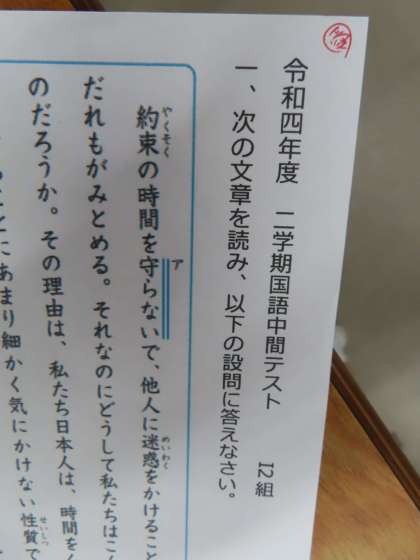 令和四年度 二学期国語中間テスト I2組
一、次の文章を読み、以下の設問に答えなさい。
約束の時間を守らないで、他人に迷惑をかけること
だれもがみとめる。それなのにどうして私たちはこ
のだろうか。その理由は、私たち日本人は、時間を
にあまり細かく気にかけない性質で